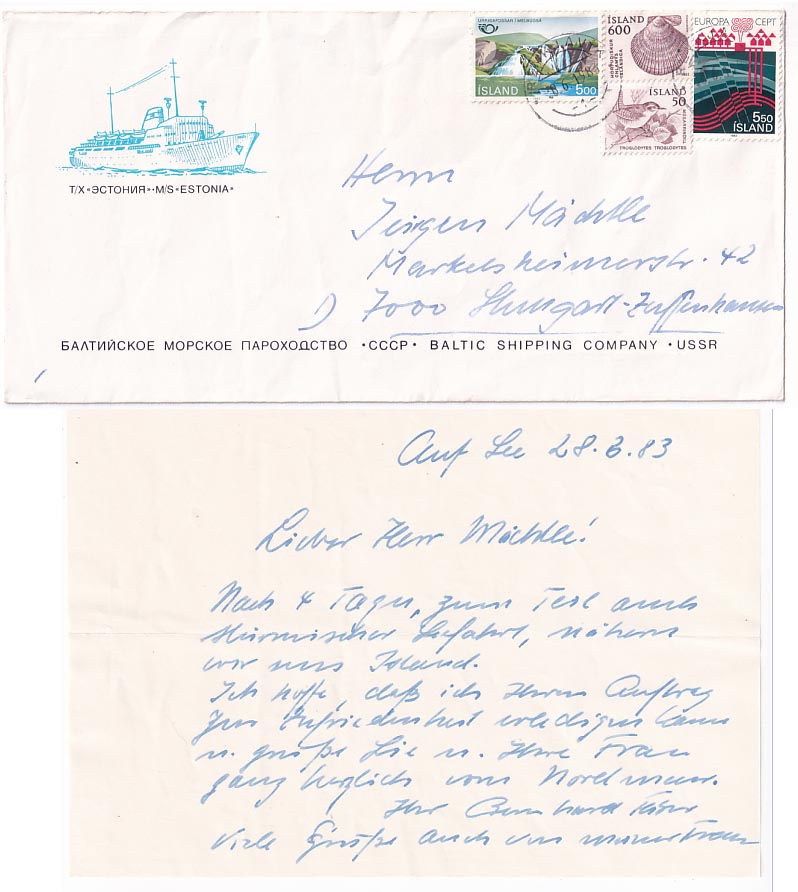 URRIÐAFOSSAR Í MELRUGSÁ
ÍSLAND 500
ÍSLAND
600
ÍSLAND
50
TROGLODYTES TROGLODYTES
EUROPA CEPT
550
ÍSLAND
Т/Х «ЭСТОНИЯ»·M/S «ESTONIA»
Herrn
Jürgen Mächtle
Markelsheimerstr. 42
7000 Stuttgart-Zuffenhausen
БАЛТИЙСКОЕ МОРСКОЕ ПАРОХОДСТВО ·СССР· BALTIC SHIPPING COMPANY ·USSR
Auf See 28.6.83
Lieber Herr Mächtle!
Nach 4 Tagen, zum Teil auch
stürmischer Seefahrt, nähern
wir uns Island.
Ich hoffe, daß ich Ihren Auftrag
zur Zufriedenheit erledigen kann
u. grüße Sie u. Ihre Frau
ganz herzlich vom Nordmeer.
Ihr Bernhard
Viele Grüße auch von meiner Frau